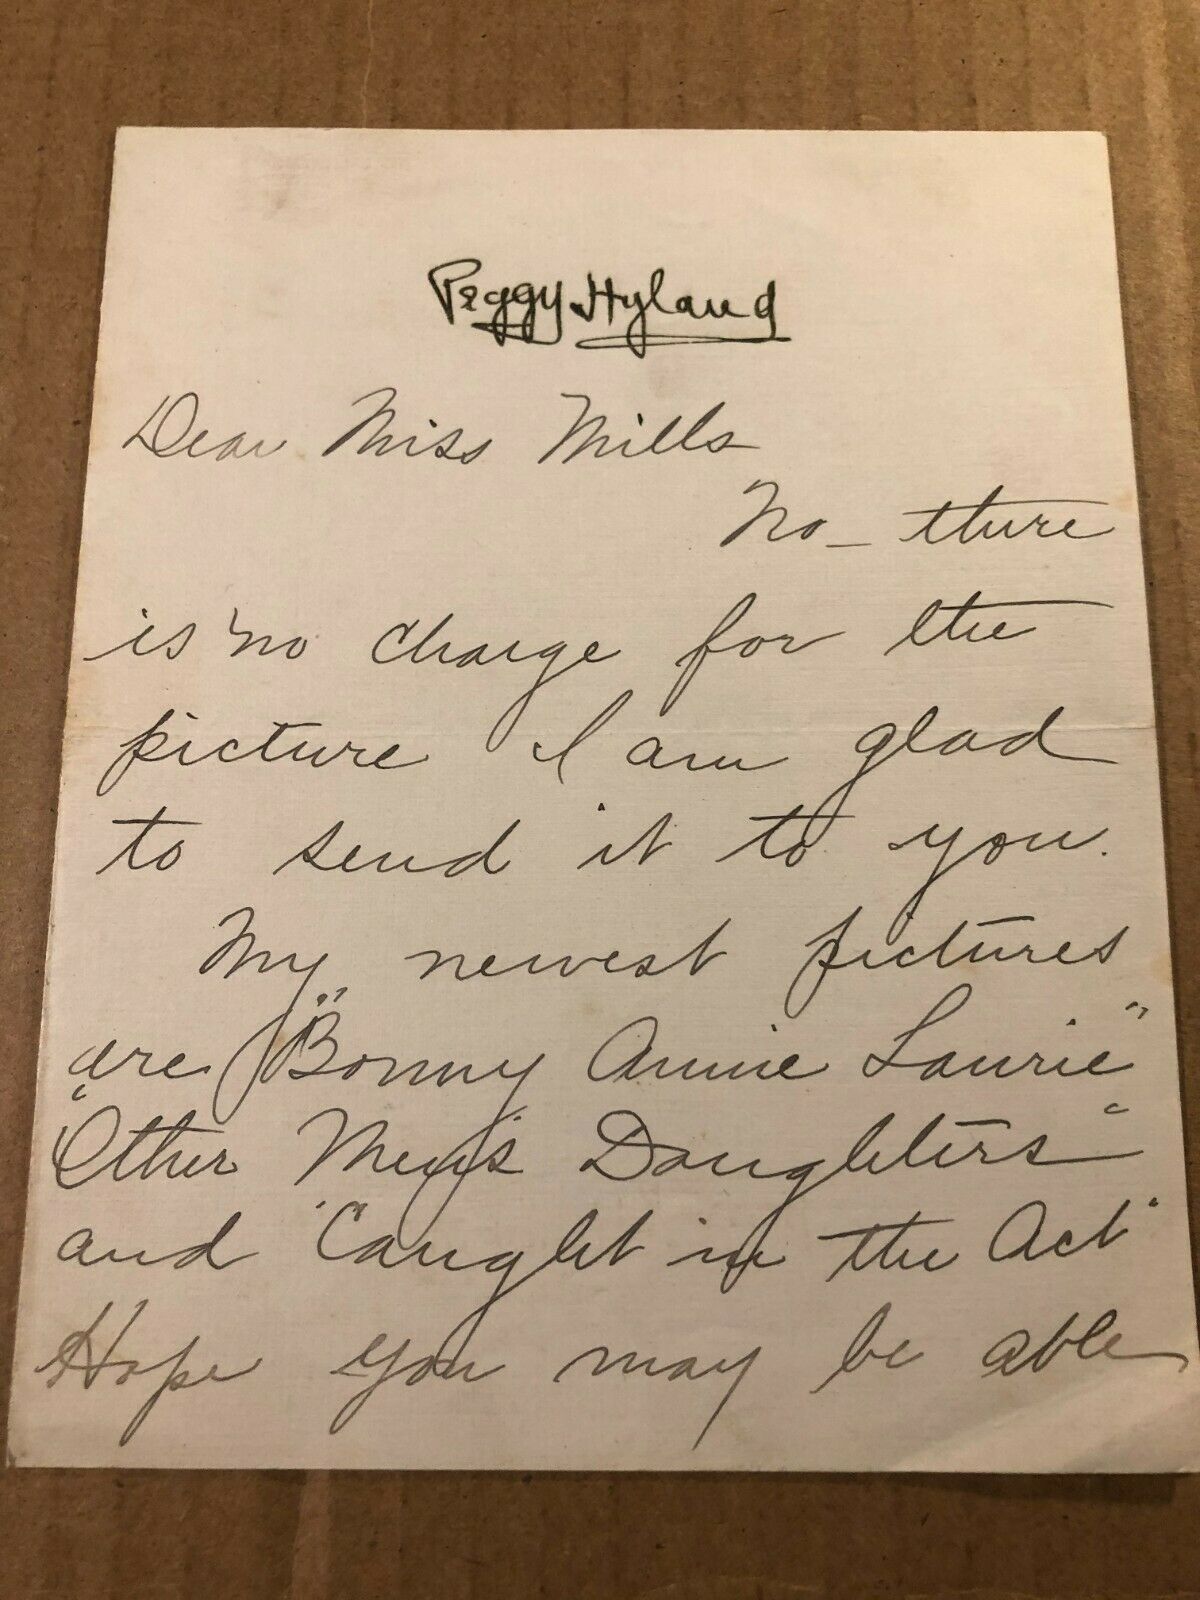 Peggy Hyland
Dear Miss Mills
No_ there
is no charge for the
picture I am glad
to send it to you.
My newest pictures
are "Bonny Annie Laurie"
"Other Men's Daughters"
and "Caught in the Act"
Hope you may be able